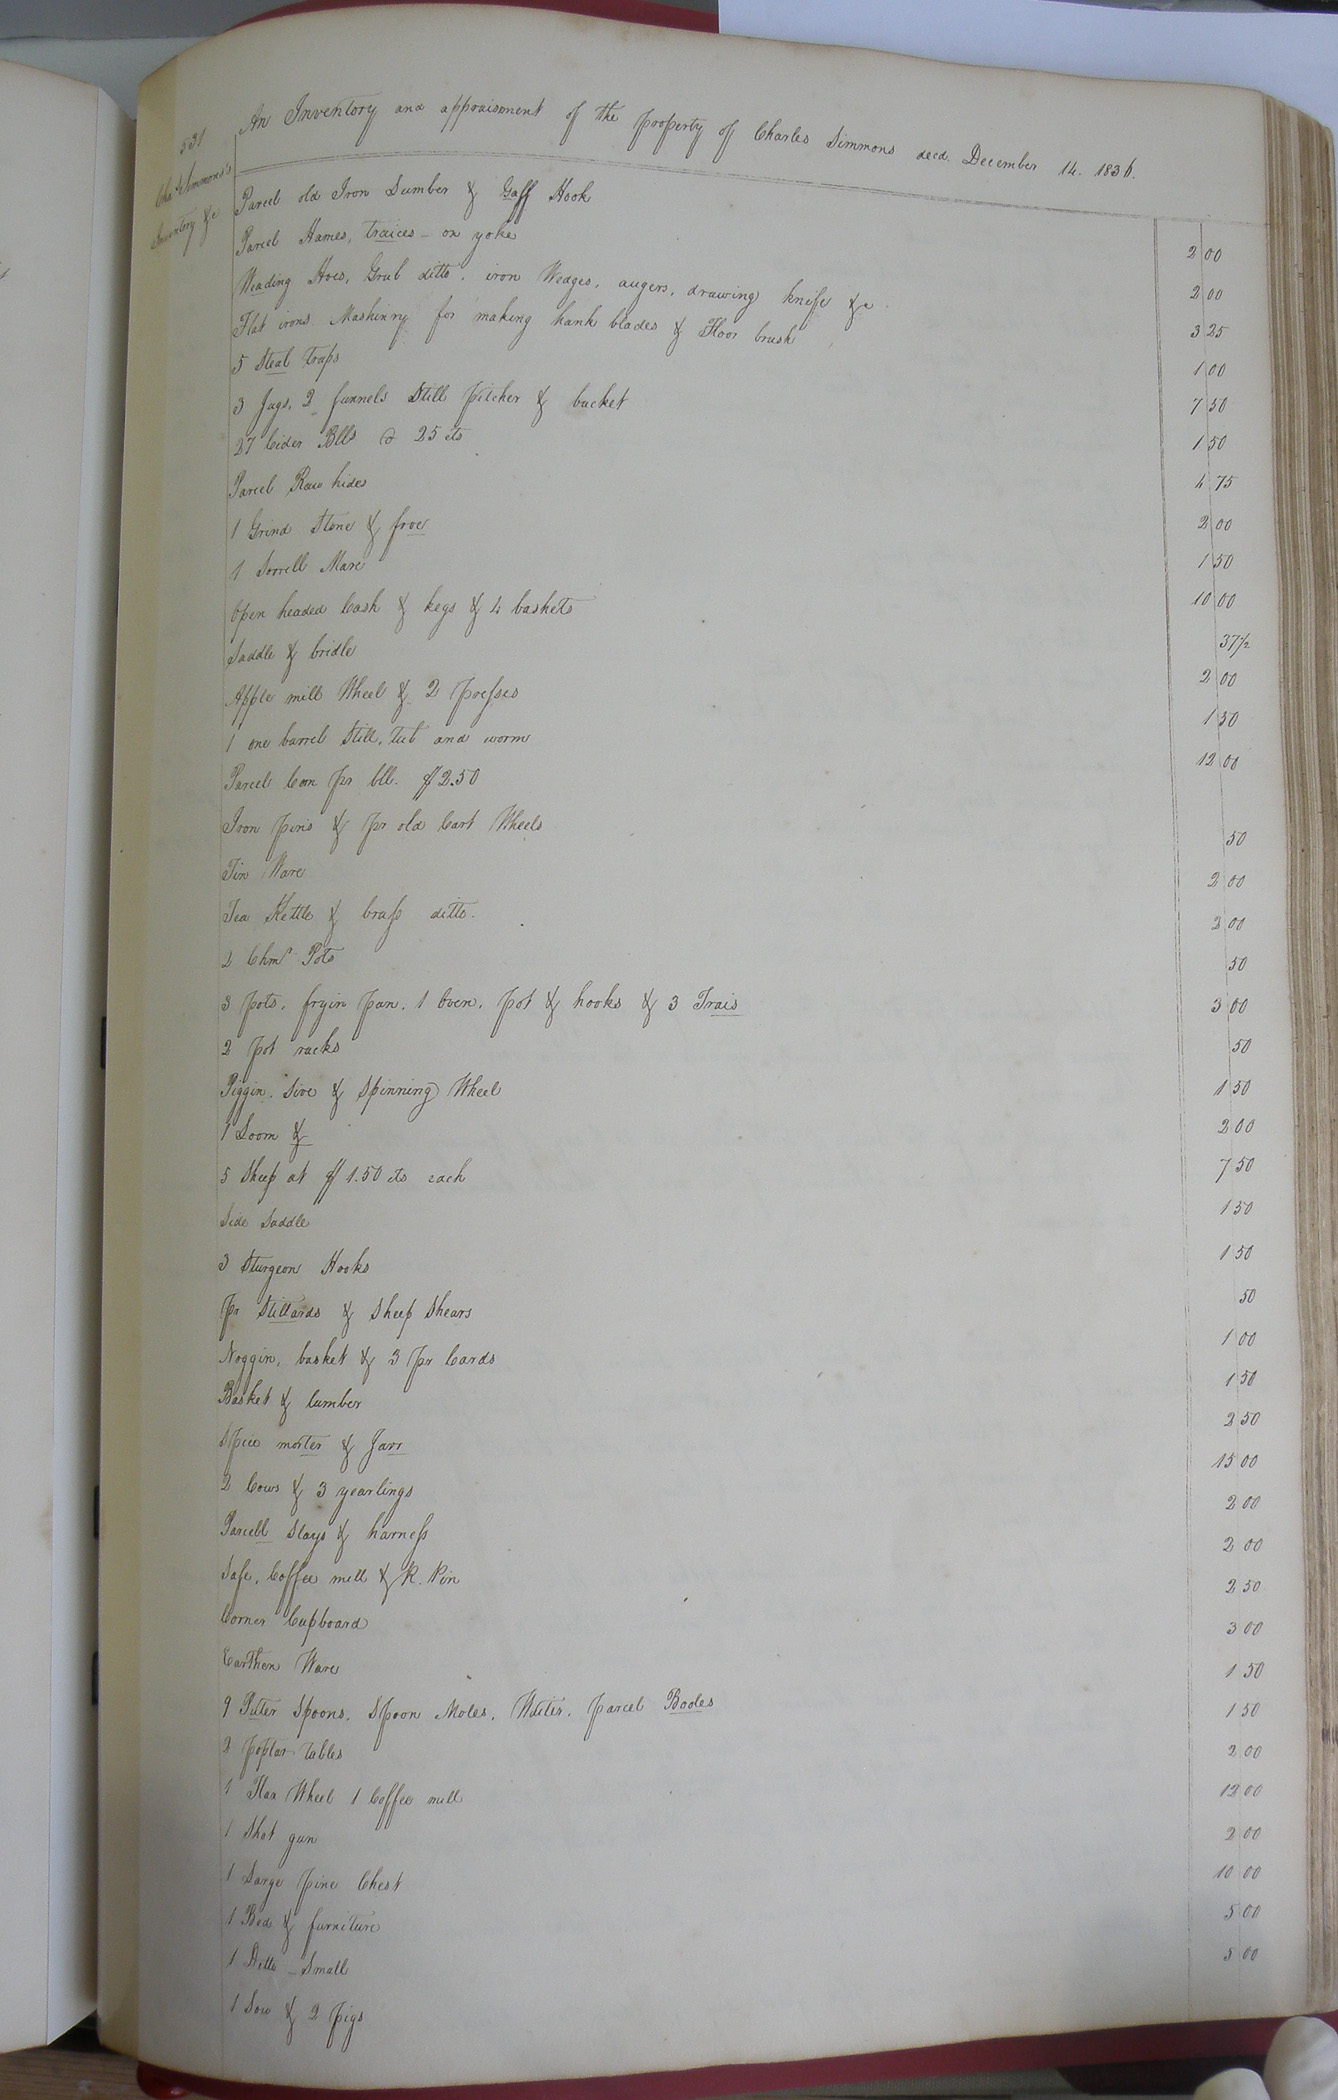 531
Cha.s Simmons's
Inventory &c
An Inventory and appraisment of the property of Charles Simmons decd. December 14. 1836.
Parcel old Iron Lumber & Gaff Hook 2 00
Parcel Hames, traices - ox yoke 2 00
Weading Hoes, Grub ditto. iron Wedges, augers, drawing knife &c. 3 25
Flat irons Mashinry for making hank blades & Floor brush 1 00
5 Steal traps 7 50
3 Jugs, 2 funnels Still pitcher & bucket 1 50
27 Cider Blls @ 25 cts 4 75
Parcel Raw hides 2 00
1 Grind Stone & froe 1 50
1 Sorrell Mare 10 00
Open headed Cask & kegs & 4 baskets 37½
Saddle & bridle 2 00
Apple mill Wheel & 2 presses 1 50
1 one barrel Still, tub and worm 12 00
Parcel Corn pr bll. $2.50
Iron pins & pr old Cart Wheels 50
Tin Ware 2 00
Tea Kettle & brass ditto. 2 00
2 Chmr Pots 50
3 pots, fryin pan, 1 Oven, pot & hooks & 3 Trais 3 00
2 pot racks 50
Piggin. Sive & Spinning Wheel 1 50
1 Loom & 2 00
5 Sheep at $1.50 cts each 7 50
Side Saddle 1 50
3 Sturgeon Hooks 1 50
pr Stillards & Sheep Shears 50
Noggin, basket & 3 pr Cards 1 00
Basket & lumber 1 50
Spice morter & Jarr 2 50
2 Cows & 3 yearlings 15 00
Parcell Slays & harness 2 00
Safe, Coffee mill & R. Pin 2 00
Corner Cupboard 2 50
Earthen Ware 3 00
9 Puter Spoons, Spoon Moles, Waiter, parcel Booles 1 50
2 poplar tables 1 50
1 Flax Wheel 1 Coffee mill 2 00
1 Shot gun 12 00
1 Large pine Chest 2 00
1 Bed & furniture 10 00
1 Ditto - Small 5 00
1 Sow & 2 pigs 5 00